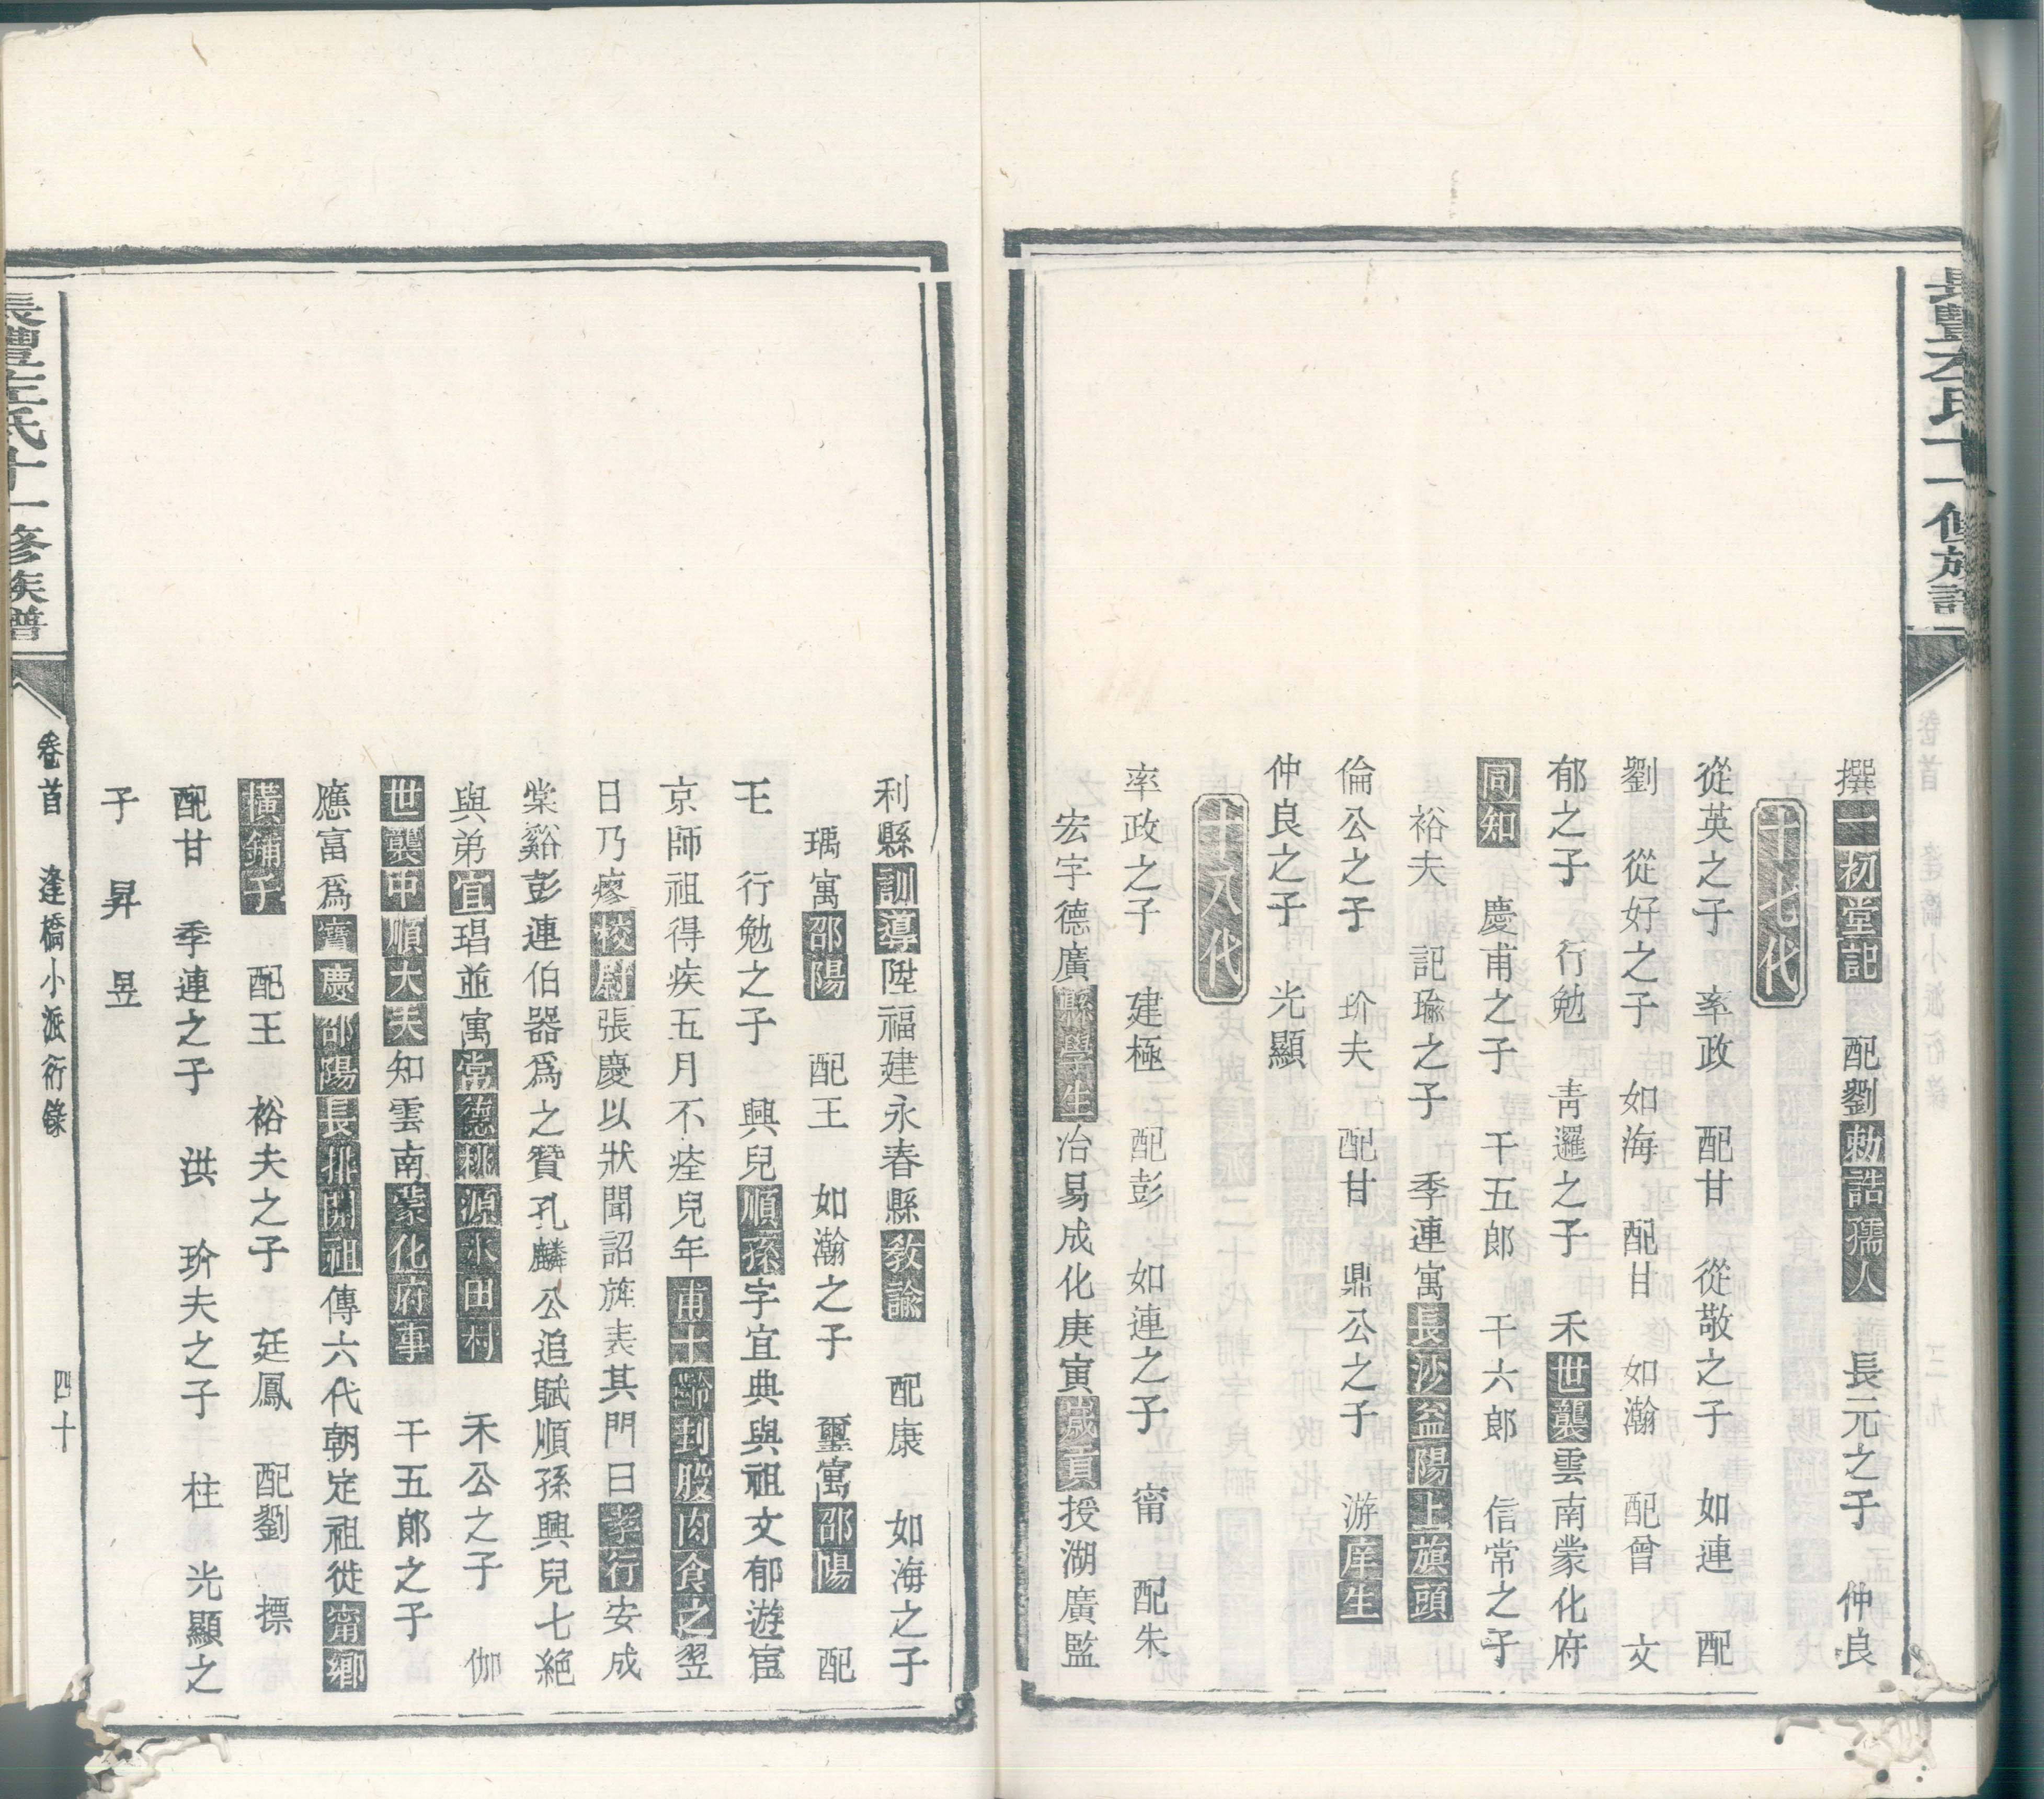 撰一初堂記 配劉勅誥孺人 長元之子 仲良
十七代
從英之子 率政 配甘 從敬之子 如連 配
劉 從好之子 如海 配甘 如瀚 配曾 文
郁之子 行勉 靑邏之子 禾世襲雲南蒙化府
同知 慶甫之子 千五郎 千六郎 信常之子
裕夫 記瑜之子 季連寓長沙益陽上旗頭
倫公之子 玠夫 配甘 鼎公之子 游庠生
仲良之子 光顯
十八代
率政之子 建極 配彭 如連之子 甯 配朱
宏字德廣縣學生冶易成化庚寅歲貢授湖廣監
利縣訓導陞福建永春縣敎諭 配康 如海之子
瑀寓邵陽 配王 如瀚之子 璽寓邵陽 配
王 行勉之子 興兒順孫字宜典與祖文郁遊宦
京師祖得疾五月不痊兒年甫十齡刲股肉食之翌
日乃瘳校尉張慶以狀聞詔旌表其門曰孝行安成
棠谿彭連伯器爲之贊孔麟公追賦順孫興兒七絕
與弟宜琩並寓常德桃源水田村 禾公之子 伽
世襲中順大夫知雲南蒙化府事 千五郎之子
應富爲寶慶邵陽長排開祖傳六代朝定祖徙甯鄉
橫鋪子 配王 裕夫之子 廷鳳 配劉 摽
配甘 季連之子 洪 玠夫之子 柱 光顯之
子 昇 昱
卷首 逢橋小派衍錄 四十
長豐左氏十一修族譜